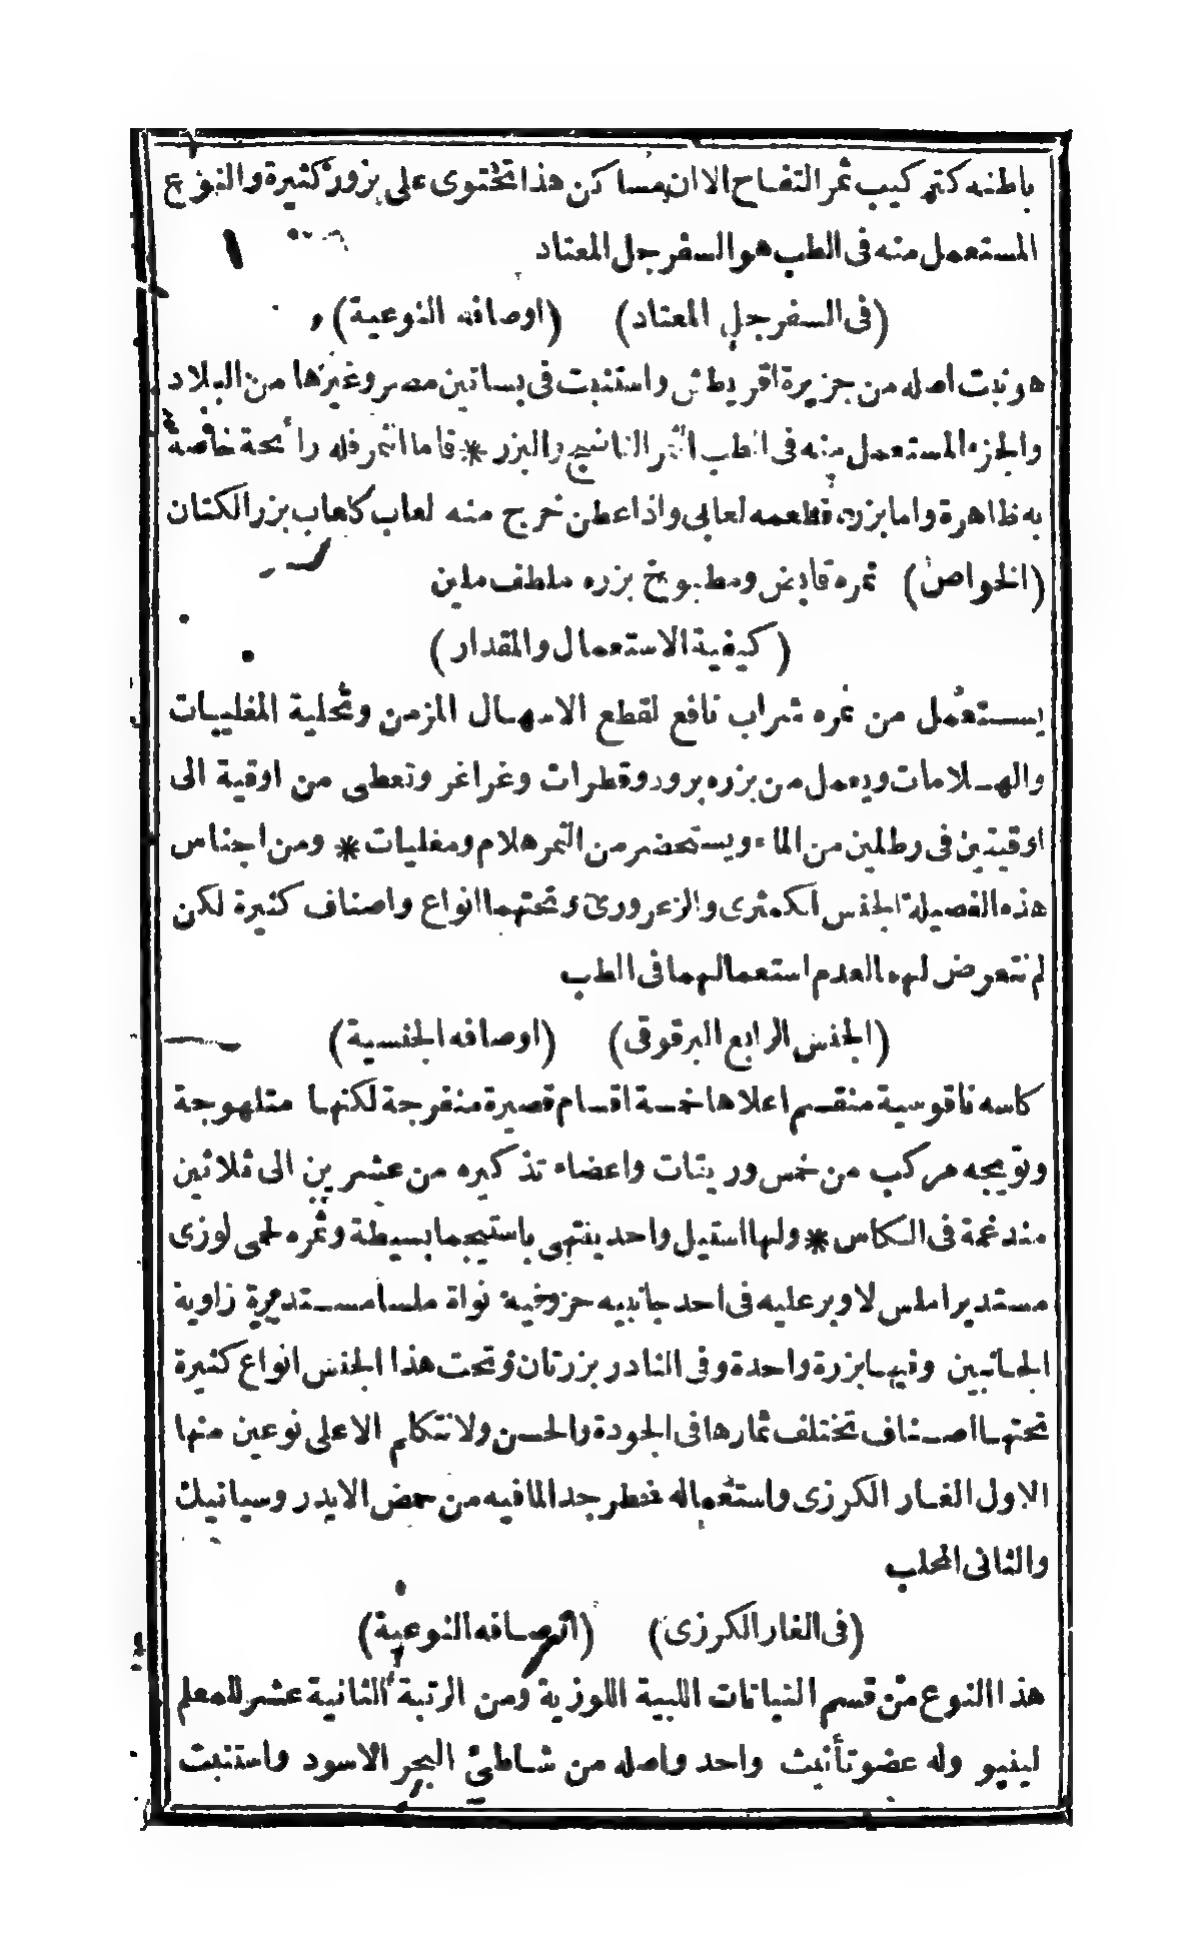 باطنه كتركيب ثمر التفاح الا ان مساكن هذا تحتوى على بزور كثيرة والنوع
المستعمل منه فى الطب هو السفرجل المعتاد
(فى السفرجل المعتاد) (اوصافه النوعية)
هو نبت اصله من جزيرة اقريطش واستنبت فى بساتين مصر وغيرها من البلاد
والجزء المستعمل منه فى الطب الثمر الناضج والبزر * فاما الثمر فله رائحة خاصة
به ظاهرة واما بزره فطعمه لعابى واذا عطن خرج منه لعاب كلعاب بزر الكتان
(الخواص) ثمره قابض ومطبوخ بزره ملطف ملين
(كيفية الاستعمال والمقدار)
يستعمل من ثمره شراب نافع لقطع الاسهال المزمن وتحلية المغليات
والهلامات ويعمل من بزره برود وقطرات وغراغر وتعطى من اوقية الى
اوقيتين فى رطلين من الماء ويستحضر من الثمر هلام ومغليات * ومن اجناس
هذه الفصيلة الجنس الكمثرى والزعرورى وتحتهما انواع واصناف كثيرة لكن
لم نتعرض لهما لعدم استعمالهما فى الطب
(الجنس الرابع البرقوقى) (اوصافه الجنسية)
كاسه ناقوسية منقسم اعلاها خمسة اقسام قصيرة منفرجة لكنها متلهوجة
وتويجه مركب من خمس وريقات واعضاء تذكيره من عشرين الى ثلاثين
مندغمة فى الكاس * ولها استيل واحد ينتهى باستيجما بسيطة وثمره لحمى لوزى
مستدير املس لا وبر عليه فى احد جانبيه حز وفيه نواة ملسا مستديرة زاوية
الجانبين وفيها بزرة واحدة وفى النادر بزرتان وتحت هذا الجنس انواع كثيرة
تحتها اصناف تختلف ثمارها فى الجودة والحسن ولا نتكلم الا على نوعين منها
الاول الغار الكرزى واستعماله خطر جدا لما فيه من حمض الايدروسيانيك
والثانى المحلب
(فى الغار الكرزى) (اوصافه النوعية)
هذا النوع من قسم النباتات اللبية اللوزية ومن الرتبة الثانية عشر للمعلم
لينيو وله عضو تأنيث واحد واصله من شاطئ البحر الاسود واستنبت